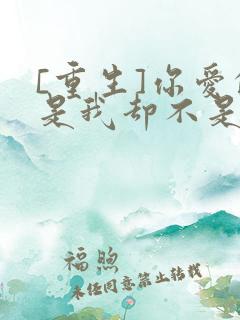 [重生]你爱
是我却不是
福煦
未经同意禁止转载